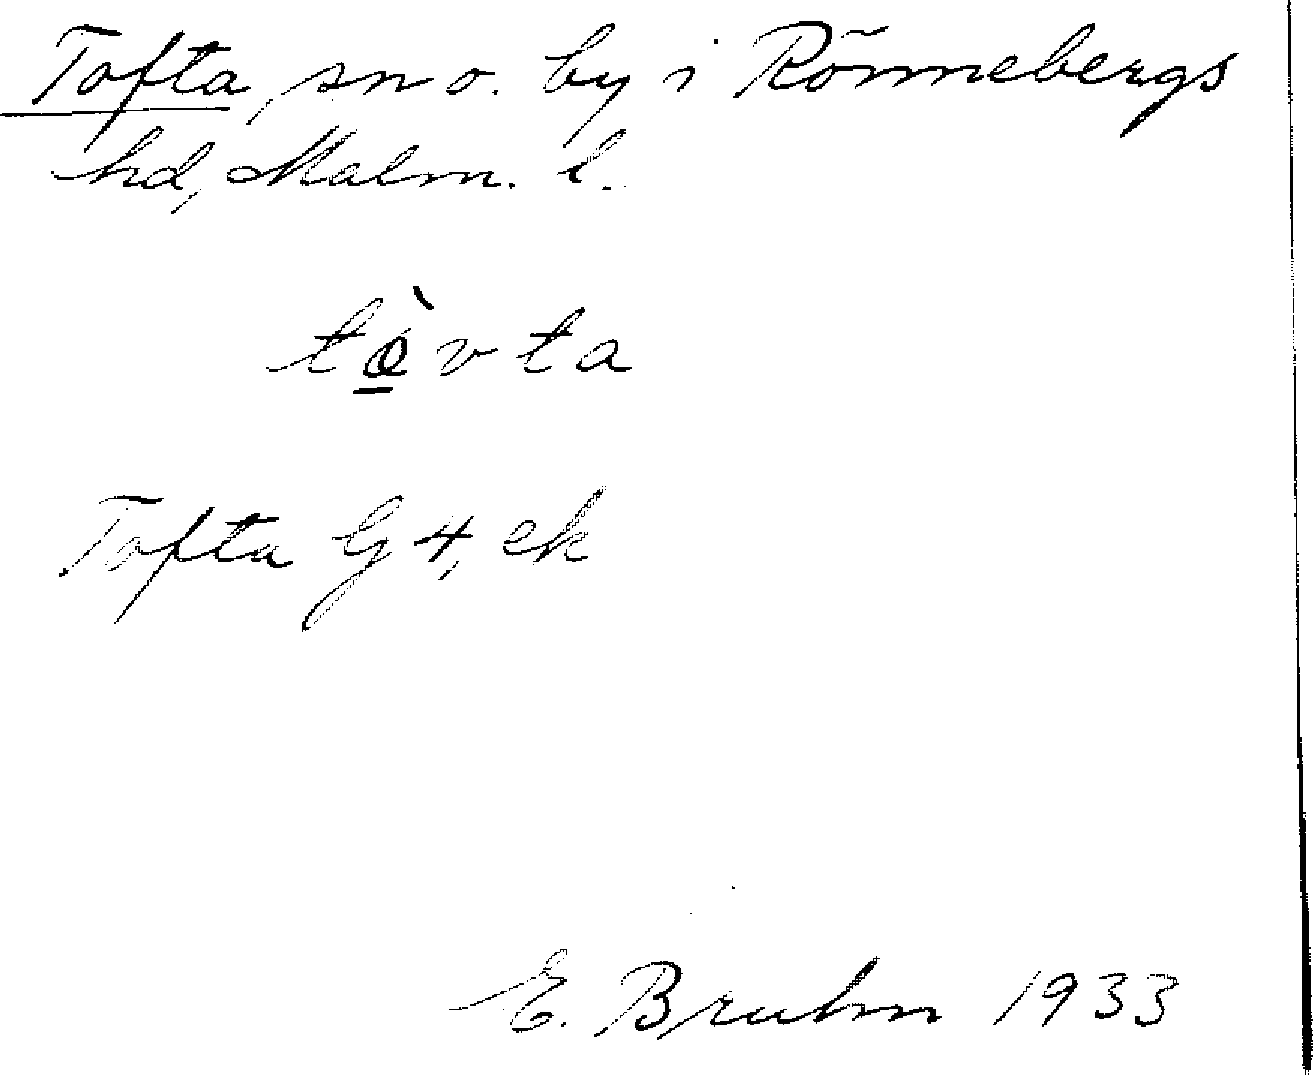 Tofta sn o. by i Rönnebergs
hd, Malm. l.
tò̱vta
Tofta G 4, ek
E. Bruhn 1933